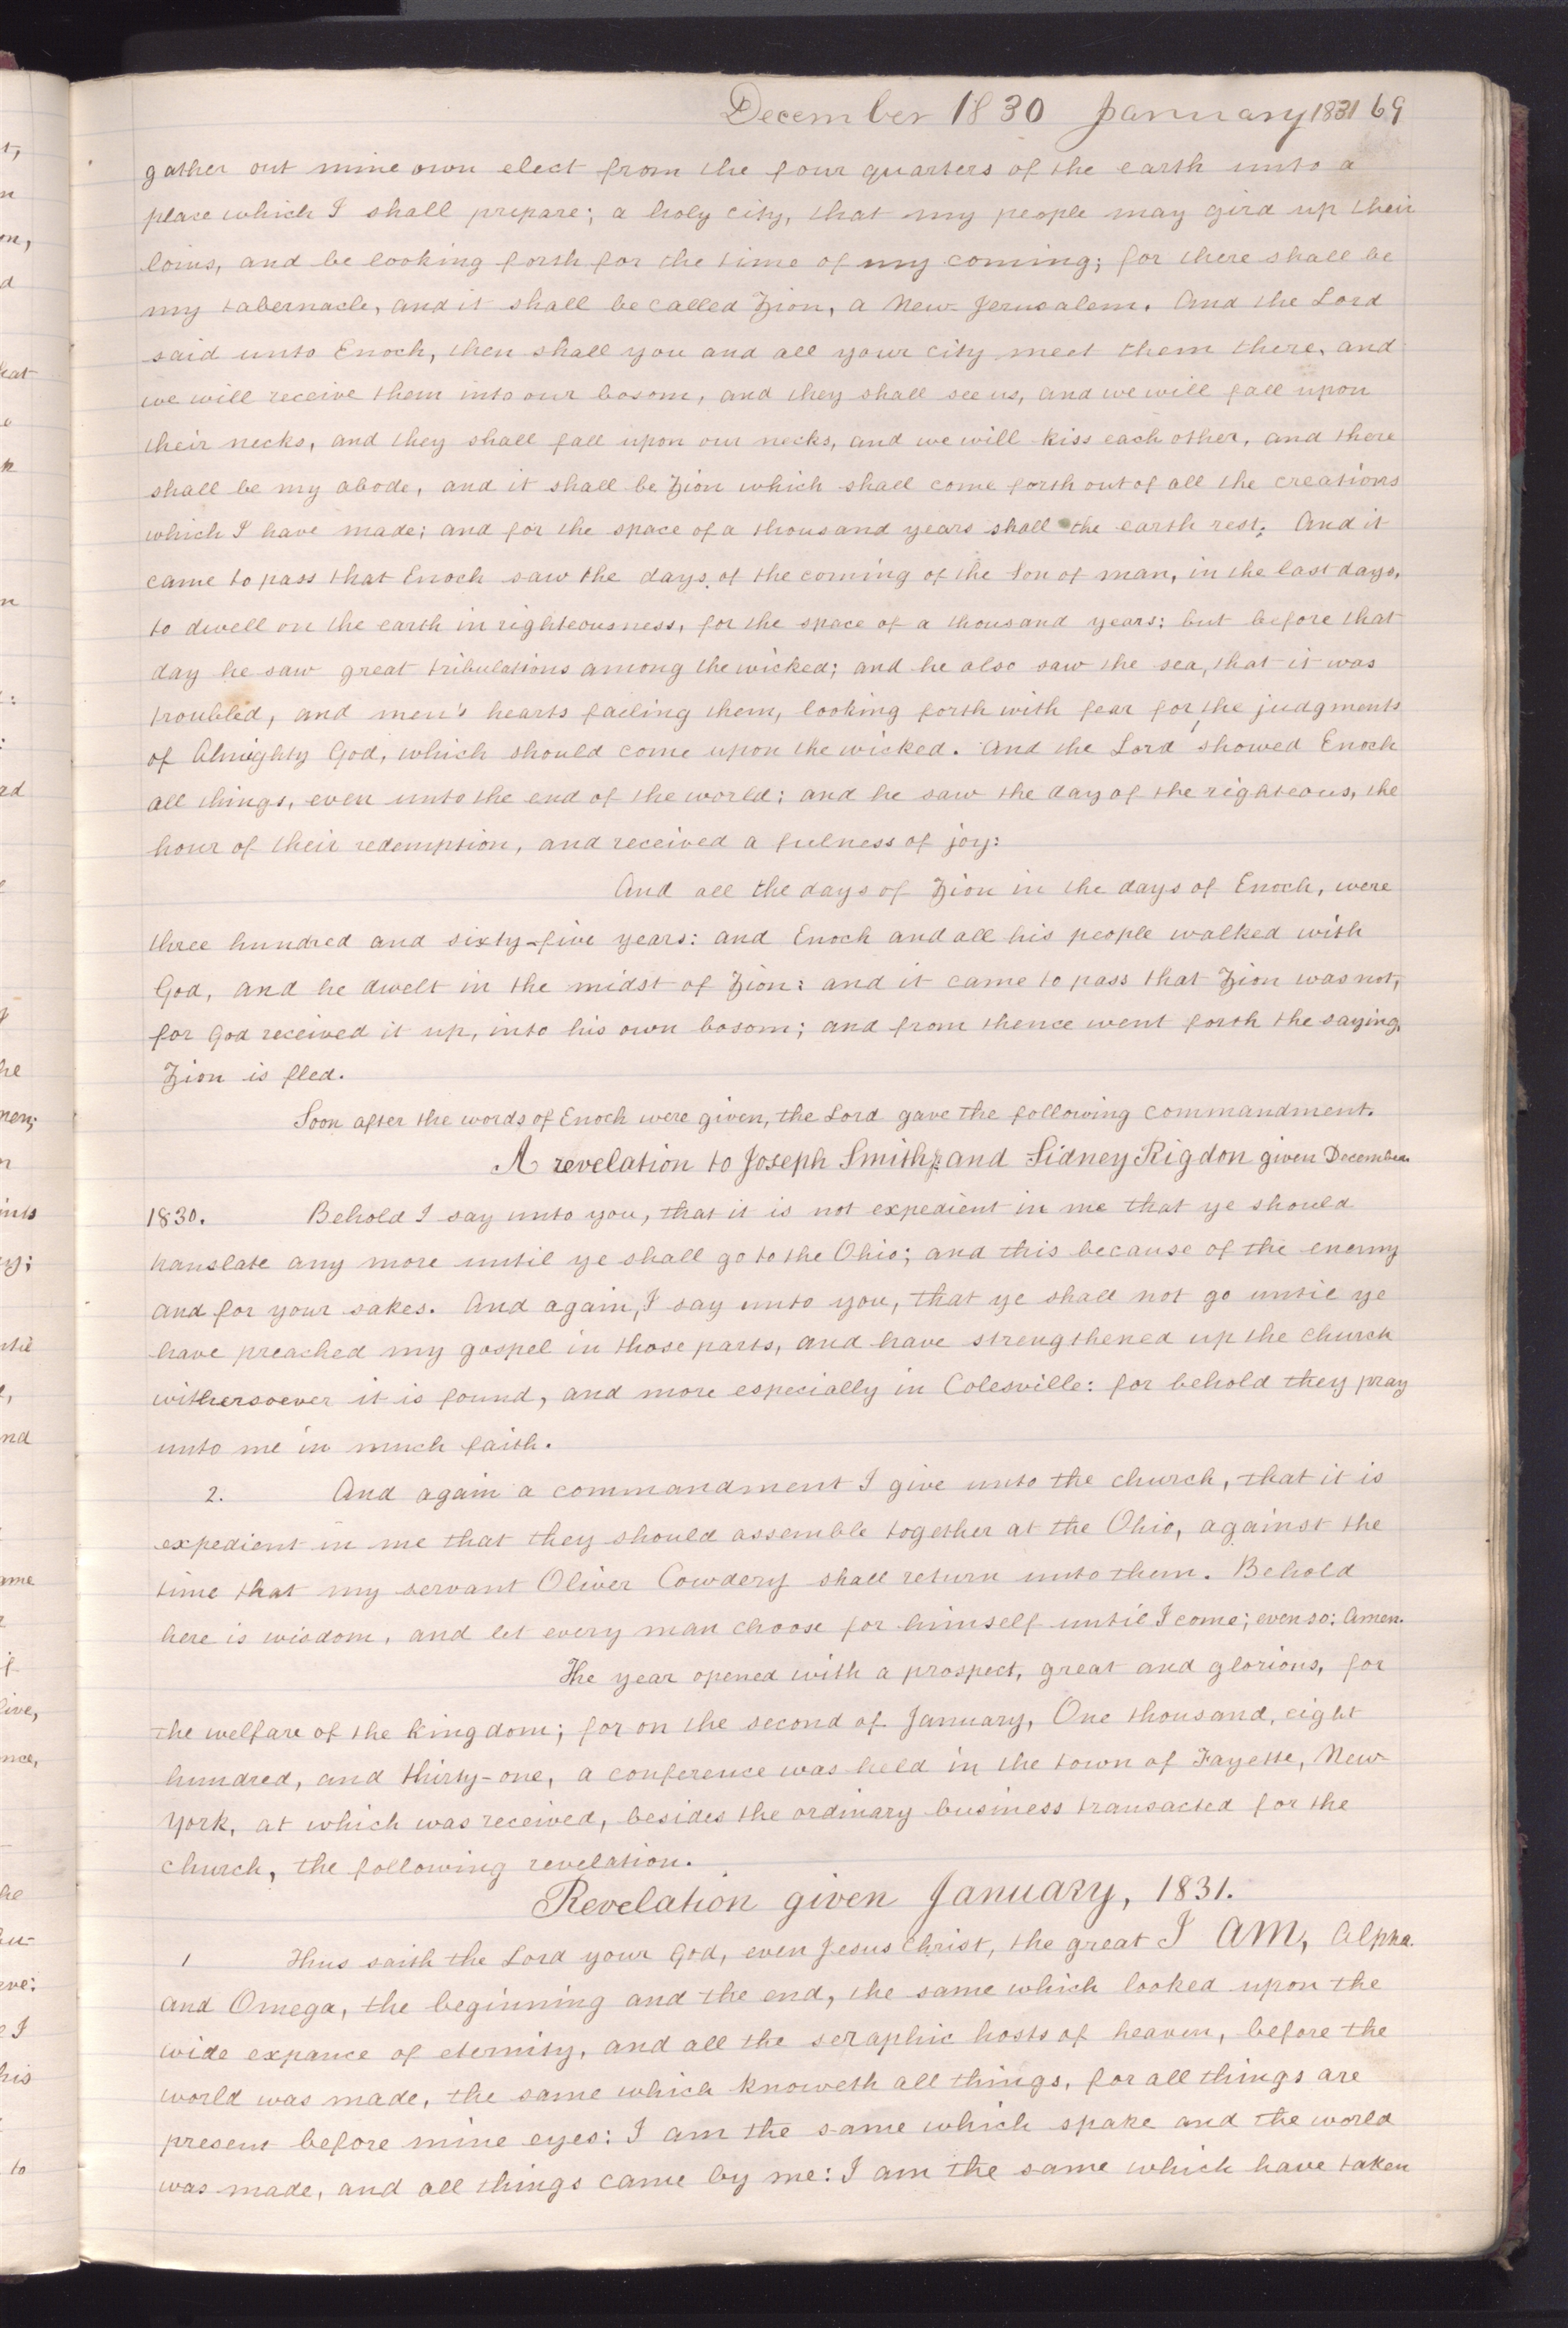 December 1830 January 1831 69
gather out mine own elect from the four quarters of the earth unto a
place which I shall prepare; a holy city, that my people may gird up their
loins, and be looking forth for the time of my coming; for there shall be
my tabernacle, and it shall be called Zion, a New Jerusalem. And the Lord
said unto Enoch, then shall you and all your city meet them there, and
we will receive them into our bosom, and they shall see us, and we will fall upon
their necks, and they shall fall upon our necks, and we will kiss each other, and there
shall be my abode, and it shall be Zion which shall come forth out of all the creations
which I have made; and for the space of a thousand years shall the earth rest. And it
came to pass that Enoch saw the days of the coming of the Son of man, in the last days,
to dwell on the earth in righteousness, for the space of a thousand years: but before that
day he saw great tribulations among the wicked; and he also saw the sea, that it was
troubled, and men's hearts failing them, looking forth with fear for the judgments
of Almighty God, which should come upon the wicked. And the Lord showed Enoch
all things, even unto the end of the world; and he saw the day of the righteous, the
hour of their redemption, and received a fulness of joy:
And all the days of Zion in the days of Enoch, were
three hundred and sixty-five years: and Enoch and all his people walked with
God, and he dwelt in the midst of Zion: and it came to pass that Zion was not,
for God received it up, into his own bosom; and from thence went forth the saying,
Zion is fled.
Soon after the words of Enoch were given, the Lord gave the following commandment.
A revelation to Joseph Smith jr. and Sidney Rigdon given December
1830. Behold I say unto you, that it is not expedient in me that ye should
translate any more until ye shall go to the Ohio; and this because of the enemy
and for your sakes. And again, I say unto you, that ye shall not go until ye
have preached my gospel in those parts, and have strengthened up the church
withersoever it is found, and more especially in Colesville: for behold they pray
unto me in much faith.
2. And again a commandment I give unto the church, that it is
expedient in me that they should assemble together at the Ohio, against the
time that my servant Oliver Cowdery shall return unto them. Behold
here is wisdom, and let every man choose for himself until I come; even so: Amen.
The year opened with a prospect, great and glorious, for
the welfare of the kingdom; for on the second of January, One thousand, eight
hundred, and thirty-one, a conference was held in the town of Fayette, New-
York, at which was received, besides the ordinary business transacted for the
church, the following revelation.
Revelation given January, 1831.
1 Thus saith the Lord your God, even Jesus Christ, the great I AM, Alpha
and Omega, the beginning and the end, the same which looked upon the
wide expance of eternity, and all the seraphic hosts of heaven, before the
world was made, the same which knoweth all things, for all things are
present before mine eyes: I am the same which spake and the world
was made, and all things came by me: I am the same which have taken